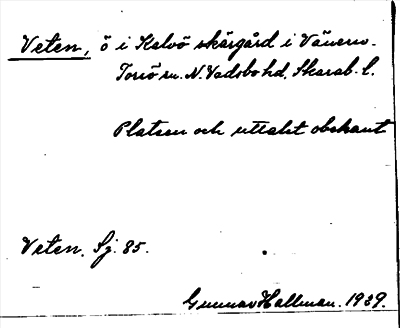 Veten, ö i Kalvö skärgård i Vänern.
Torsö sn. N. Vadsbo hd. Skarab. l.
Platsen och uttalet obekant
Veten. Sj. 85.
Gunnar Hallman. 1939.